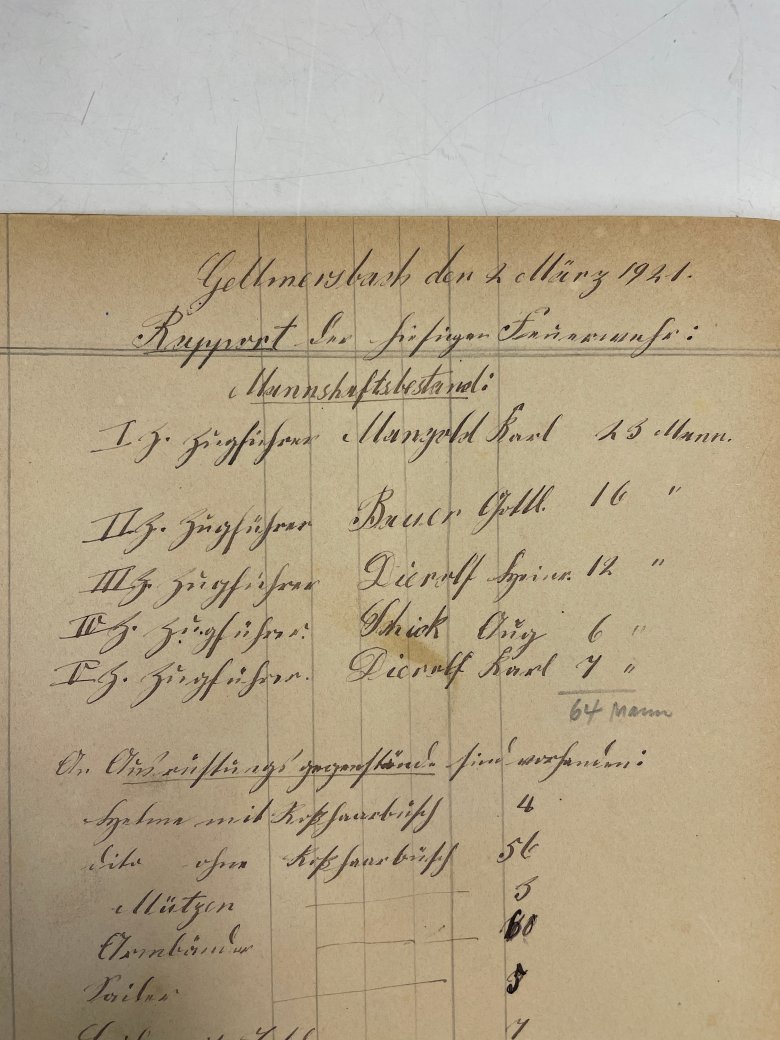 Gellmersbach den 2 März 1921.
Rapport der hiesigen Feuerwehr:
Mannshaftsbestand:
I Z. Zugführer Mangold Karl 23 Mann.
II Z. Zugführer Bauer Gottl. 16 "
III Z. Zugführer Dierolf Heinr. 12 "
IV Z. Zugführer. Schick Aug 6 "
V Z. Zugführer. Dierolf Karl 7 "
64 Mann
An Ausrüstungsgegenstände sind vorhanden:
Helme mit Roßhaarbüsch 4
dito ohne Roßhaarbüsch 56
Mützen 3
Armbänder 60
Sailer 5
7